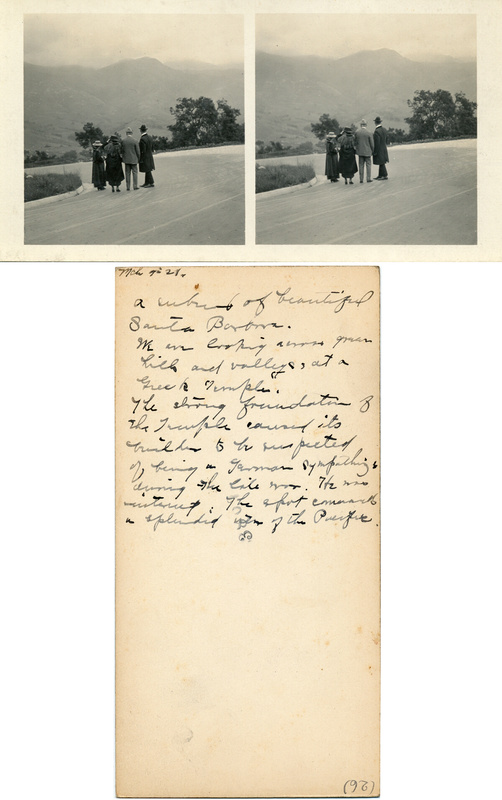 Mch 9th 21.
a suburb of beautiful
Santa Barbara.
We are looking across green
hills and valleys, at a
Greek Temple.
The strong foundation of
the Temple caused its
builder to be suspected
of being a German sympathizer
during the late war. He was
interned. The spot commands
a splendid view of the Pacific.
(26)